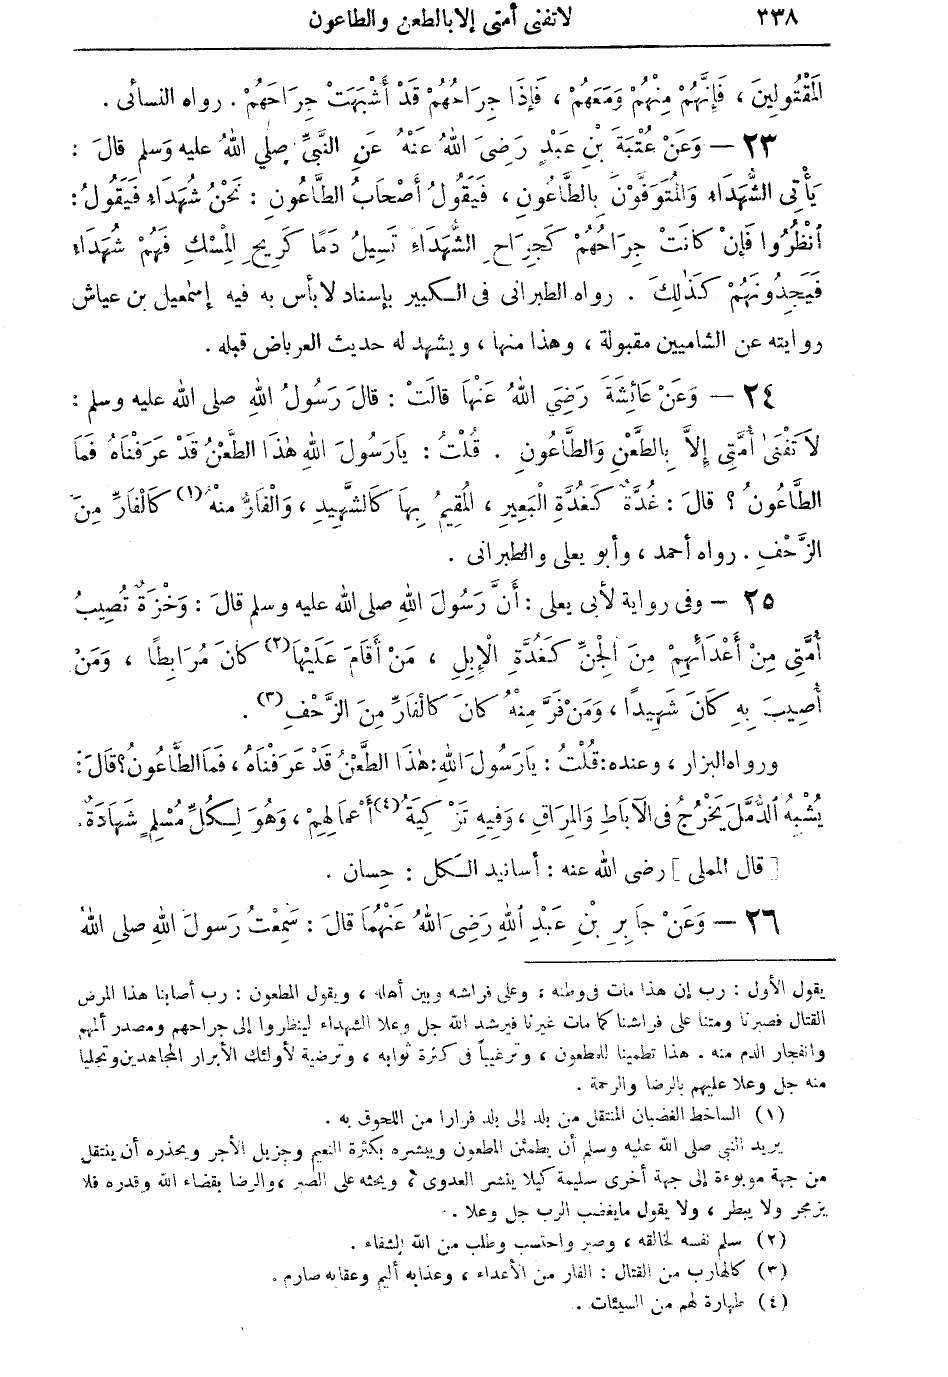 ٣٣٨ لاتفنى أمتى إلا بالطعن والطاعون
الْمَقْتُولِينَ ، فَإِنَّهُمْ مِنْهُمْ وَمَعَهُمْ ، فَإِذَا جِرَاحُهُمْ قَدْ أَشْبَهَتْ جِرَاحَهُمْ . رواه النسائى .
٢٣ – وَعَنْ عُتْبَةَ بْنِ عَبْدٍ رَضِىَ اللهُ عَنْهُ عَنِ النَّبِىِّ صلى اللهُ عليه وَسلم قالَ :
يَأْتِى الشُّهَدَاءِ وَالْمُتَوَفَّوْنَ بِالطَّاعُونِ ، فَيَقُولُ أَصْحَابُ الطَّاعُونِ : نَحْنُ شُهَدَاءِ فَيَقُولُ :
اُنْظُرُوا فَإِنْ كَانَتْ جِرَاحُهُمْ كَجِرَاحِ الشُّهَدَاءِ تَسِيلُ دَمًا كَرِيحِ الْمِسْكِ فَهُمْ شُهَدَاءِ
فَيَجِدُونَهُمْ كَذٰلِكَ . رواه الطبرانى فى الكبير بإسناد لا بأس به فيه إسمعيل بن عياش
روايته عن الشاميين مقبولة ، وهذا منها ، ويشهد له حديث العرباض قبله .
٢٤ – وَعَنْ عَائِشَةَ رَضِيَ اللهُ عَنْهَا قالَتْ : قالَ رَسُولُ اللهِ صلى الله عليه وسلم :
لاَ تَفْنَىٰ أُمَّتِى إِلاَّ بِالطَّعْنِ وَالطَّاعُونِ . قُلْتُ : يَارَسُولَ اللهِ هٰذَا الطَّعْنُ قَدْ عَرَفْنَاهُ فَمَا
الطَّاعُونُ ؟ قالَ : غُدَّةٌ كَغُدَّةِ الْبَعِيرِ ، الْمُقِيمُ بِهَا كَالشَّهِيدِ ، وَالْفَارُّ مِنْهُ (١) كَالْفَارِّ مِنَ
الزَّحْفِ . رواه أحمد ، وأبو يعلى والطبرانى .
٢٥ – وفى رواية لأبى يعلى : أَنَّ رَسُولَ اللهِ صلى الله عليه وسلم قالَ : وَخْزَةٌ تُصِيبُ
أُمَّتِى مِنْ أَعْدَائِهِمْ مِنَ الْجِنِّ كَغُدَّةِ الْإِبِلِ ، مَنْ أَقَامَ عَلَيْهَا (٢) كَانَ مُرَابِطًا ، وَمَنْ
أُصِيبَ بِهِ كَانَ شَهِيدًا ، وَمَنْ فَرَّ مِنْهُ كَانَ كَالْفَارِّ مِنَ الزَّحْفِ (٣) .
ورواه البزار ، وعنده : قُلْتُ : يَارَسُولَ اللهِ : هٰذَا الطَّعْنُ قَدْ عَرَفْنَاهُ ، فَمَا الطَّاعُونُ ؟ قَالَ :
يُشْبِهُ الدُّمَّلَ يَخْرُجُ فِى الآبَاطِ وَالْمَرَاقِ ، وَفِيهِ تَزْكِيَةُ (٤) أَعْمَالِهِمْ ، وَهُوَ لِكُلِّ مُسْلِمٍ شَهَادَةٌ .
[ قال المملى ] رضى الله عنه : أسانيد الكل : حِسان .
٢٦ – وَعَنْ جَابِرِ بْنِ عَبْدِ اللهِ رَضِىَ اللهُ عَنْهُمَا قَالَ : سَمِعْتُ رَسولَ اللهِ صلى اللهُ
يقول الأول : رب إن هذا مات فى وطنه : وعلى فراشه وبين أهله ، ويقول المطعون : رب أصابنا هذا المرض
القتال فصبرنا ومتنا على فراشنا كما مات غيرنا فيرشد الله جل وعلا الشهداء لينظروا إلى جراحهم ومصدر ألمهم
وانفجار الدم منه . هذا تطمينا للمطعون ، وترغيباً فى كثرة ثوابه ، وترضية لأولئك الأبرار المجاهدين وتجليا
منه جل وعلا عليهم بالرضا والرحمة .
(١) الساخط الغضبان المنتقل من بلد إلى بلد فرارا من اللحوق به .
يريد النبى صلى الله عليه وسلم أن يطمئن المطعون ويبشره بكثرة النعيم وجزيل الأجر ويحذره أن ينتقل
من جهة موبوءة إلى جهة أخرى سليمة كيلا ينتشر العدوى ، ويحثه على الصبر ، والرضا بقضاء الله وقدره فلا
يزمجر ولا يبطر ، ولا يقول مايغضب الرب جل وعلا .
(٢) سلم نفسه لخالقه ، وصبر واحتسب وطلب من الله الشفاء .
(٣) كالهارب من القتال : الفار من الأعداء ، وعذابه أليم وعقابه صارم .
(٤) طهارة لهم من السيئات .